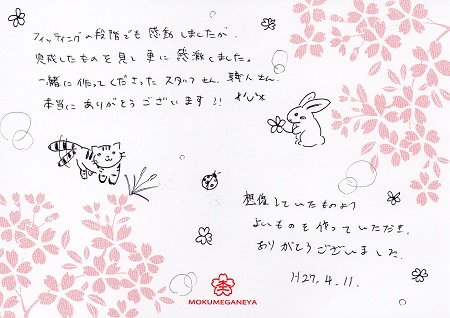 フィッティングの段階でも感動しましたが、
完成したものを見て更に感激しました。
一緒に作ってくださったスタッフさん、職人さん、
本当にありがとうございます!!
想像していたものより
よいものを作っていただき、
ありがとうございました。
H27.4.11.
MOKUMEGANEYA